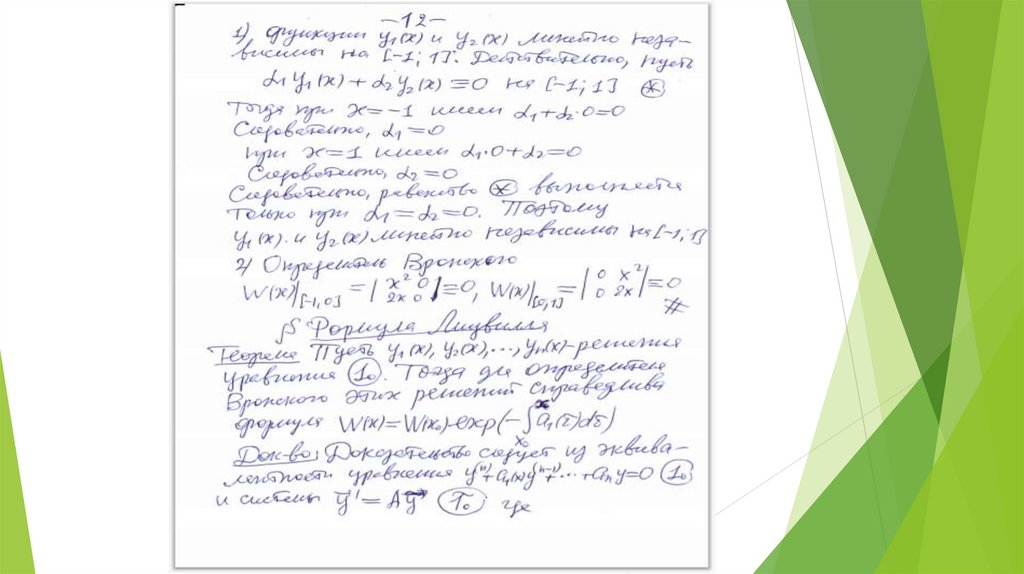 -12-
1) Функции y₁(x) и y₂(x) линейно неза-
висимы на [-1; 1]. Действительно, пусть
α₁y₁(x)+α₂y₂(x)≡0 на [-1; 1] (*)
Тогда при x=-1 имеем α₁+α₂·0=0
Следовательно, α₁=0
при x=1 имеем α₁·0+α₂=0
Следовательно, α₂=0
Следовательно, равенство (*) выполняется
только при α₁=α₂=0. Поэтому
y₁(x) и y₂(x) линейно независимы на [-1; 1]
2) Определитель Вронского
W(x)|[-1,0] = |x² 0; 2x 0|≡0, W(x)|[0,1] = |0 x²; 0 2x|≡0
#
§ Формула Лиувилля
Теорема Пусть y₁(x), y₂(x),..., yₙ(x)-решения
уравнения (1₀). Тогда для определителя
Вронского этих решений справедлива
формула W(x)=W(x₀)·exp(-∫ₓ₀ˣ a₁(τ)dτ)
Док-во: Доказательство следует из эквива-
лентности уравнения y⁽ⁿ⁾+a₁(x)y⁽ⁿ⁻¹⁾+...+aₙy=0 (1₀)
и системы y⃗'=Ay⃗ (T₀) где